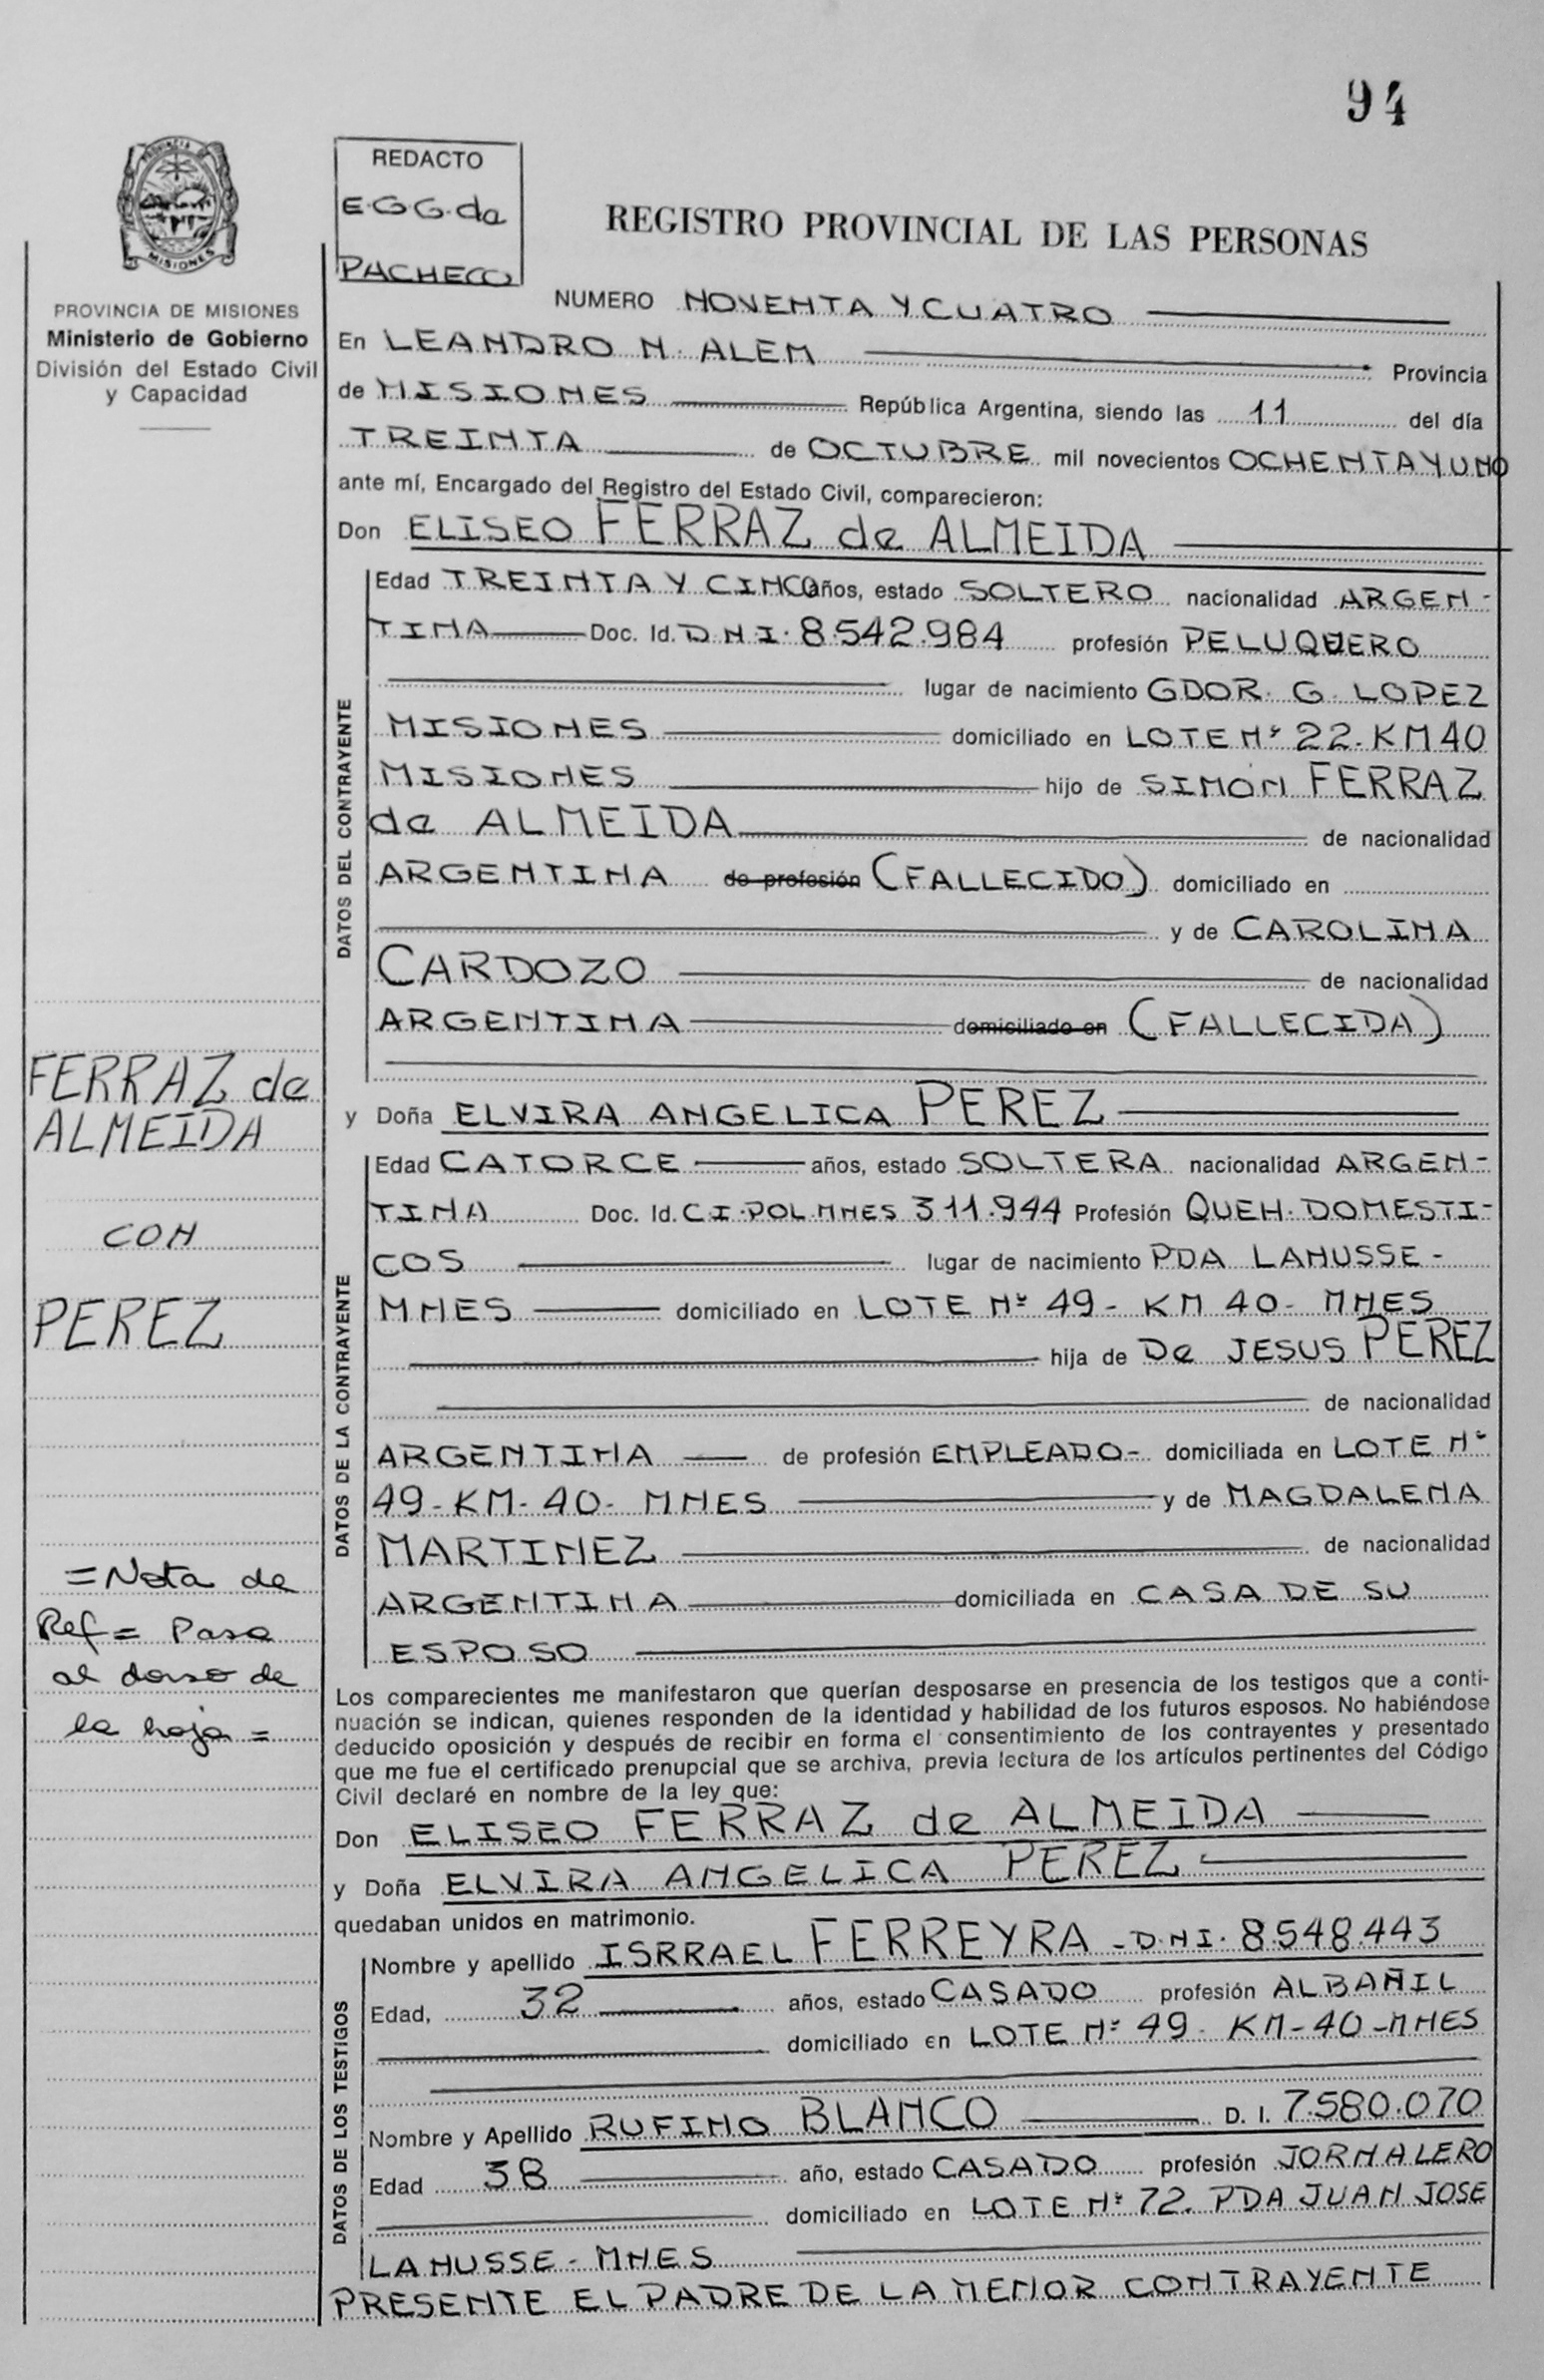 94
REDACTO
E.G.G. da
PACHECO
PROVINCIA DE MISIONES
MISIONES
PROVINCIA DE MISIONES
Ministerio de Gobierno
División del Estado Civil
y Capacidad
REGISTRO PROVINCIAL DE LAS PERSONAS
NUMERO NOVENTA Y CUATRO
En LEANDRO N. ALEM Provincia
de MISIONES República Argentina, siendo las 11 del día
TREINTA de OCTUBRE mil novecientos OCHENTA Y UNO
ante mí, Encargado del Registro del Estado Civil, comparecieron:
Don ELISEO FERRAZ de ALMEIDA
DATOS DEL CONTRAYENTE
Edad TREINTA Y CINCO años, estado SOLTERO nacionalidad ARGEN-
TINA Doc. Id. D.N.I. 8.542.984 profesión PELUQUERO
lugar de nacimiento GDOR. G. LOPEZ
MISIONES domiciliado en LOTE Nº 22. KM 40
MISIONES hijo de SIMÓN FERRAZ
de ALMEIDA de nacionalidad
ARGENTINA de profesión (FALLECIDO) domiciliado en
y de CAROLINA
CARDOZO de nacionalidad
ARGENTINA domiciliado en (FALLECIDA)
FERRAZ de
ALMEIDA
CON
PEREZ
y Doña ELVIRA ANGELICA PEREZ
DATOS DE LA CONTRAYENTE
Edad CATORCE años, estado SOLTERA nacionalidad ARGEN-
TINA Doc. Id. C.I. POL. MNES 311.944 Profesión QUEH. DOMESTI-
COS lugar de nacimiento PDA LANUSSE -
MNES domiciliado en LOTE Nº 49 - KM 40 - MNES
hija de De JESUS PEREZ
de nacionalidad
ARGENTINA de profesión EMPLEADO - domiciliada en LOTE Nº
49 - KM - 40 - MNES y de MAGDALENA
MARTINEZ de nacionalidad
ARGENTINA domiciliada en CASA DE SU
ESPOSO
= Nota de
Ref = Pasa
al dorso de
la hoja =
Los comparecientes me manifestaron que querían desposarse en presencia de los testigos que a conti-
nuación se indican, quienes responden de la identidad y habilidad de los futuros esposos. No habiéndose
deducido oposición y después de recibir en forma el consentimiento de los contrayentes y presentado
que me fue el certificado prenupcial que se archiva, previa lectura de los artículos pertinentes del Código
Civil declaré en nombre de la ley que:
Don ELISEO FERRAZ de ALMEIDA
y Doña ELVIRA ANGELICA PEREZ
quedaban unidos en matrimonio.
DATOS DE LOS TESTIGOS
Nombre y apellido ISRRAEL FERREYRA - D.N.I. 8.548.443
Edad, 32 años, estado CASADO profesión ALBAÑIL
domiciliado en LOTE Nº 49 - KM - 40 - MNES
Nombre y Apellido RUFINO BLANCO D. I. 7.580.070
Edad 38 año, estado CASADO profesión JORNALERO
domiciliado en LOTE Nº 72. PDA JUAN JOSE
LANUSSE - MNES
PRESENTE EL PADRE DE LA MENOR CONTRAYENTE